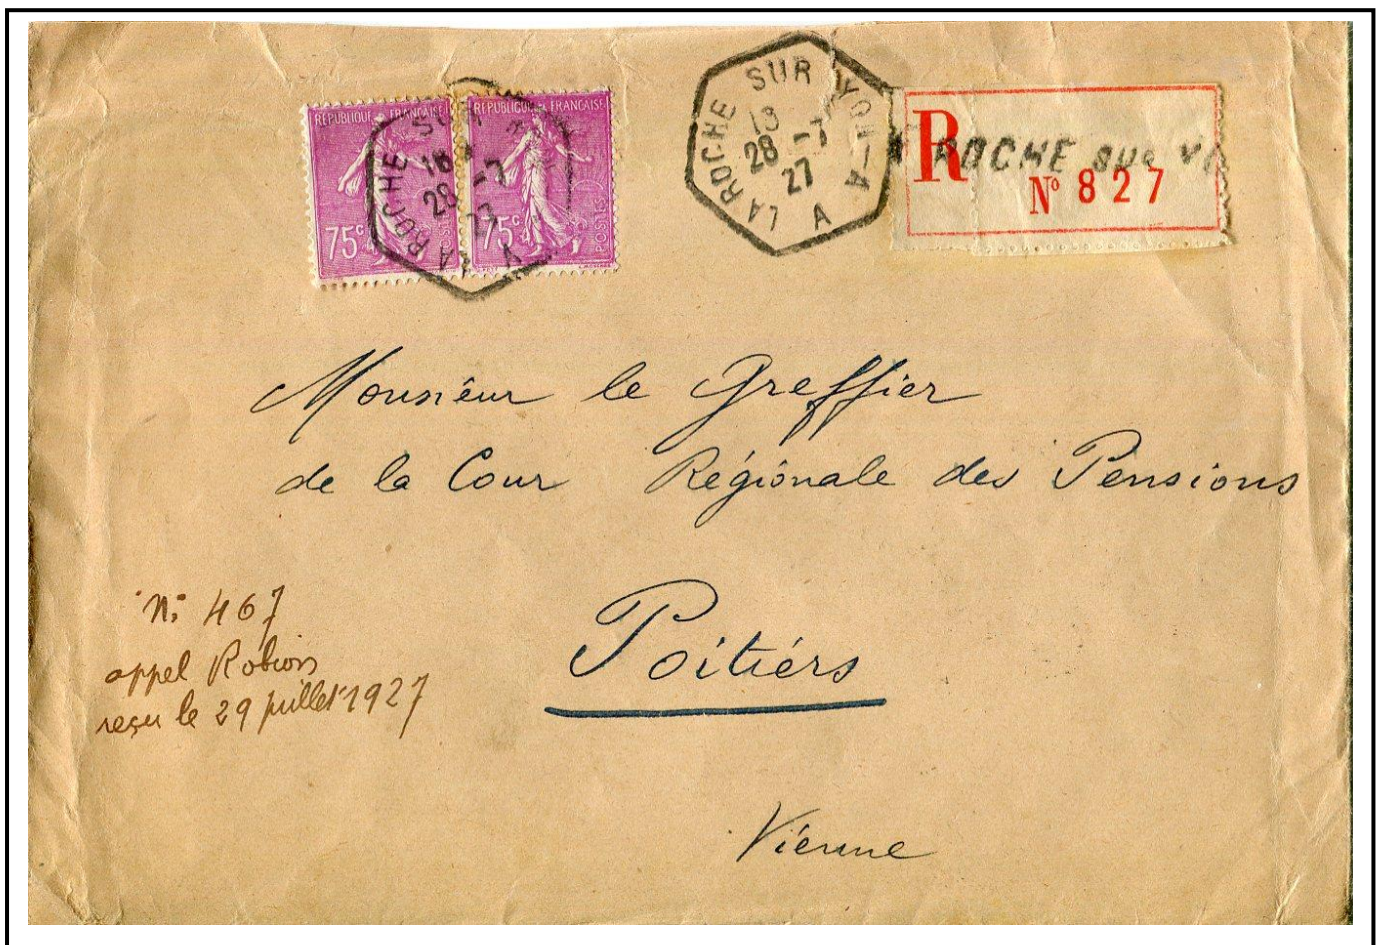 RÉPUBLIQUE FRANÇAISE
75c
RÉPUBLIQUE FRANÇAISE
75c
POSTES
LA ROCHE SUR
18
28 -7
27
A
LA ROCHE SUR YON-A
18
28 -7
27
A
R
ROCHE SUR Y
N° 827
Monsieur le Greffier
de la Cour Régionale des Pensions
Poitiers
Vienne
N° 467
appel Robion
reçu le 29 juillet 1927